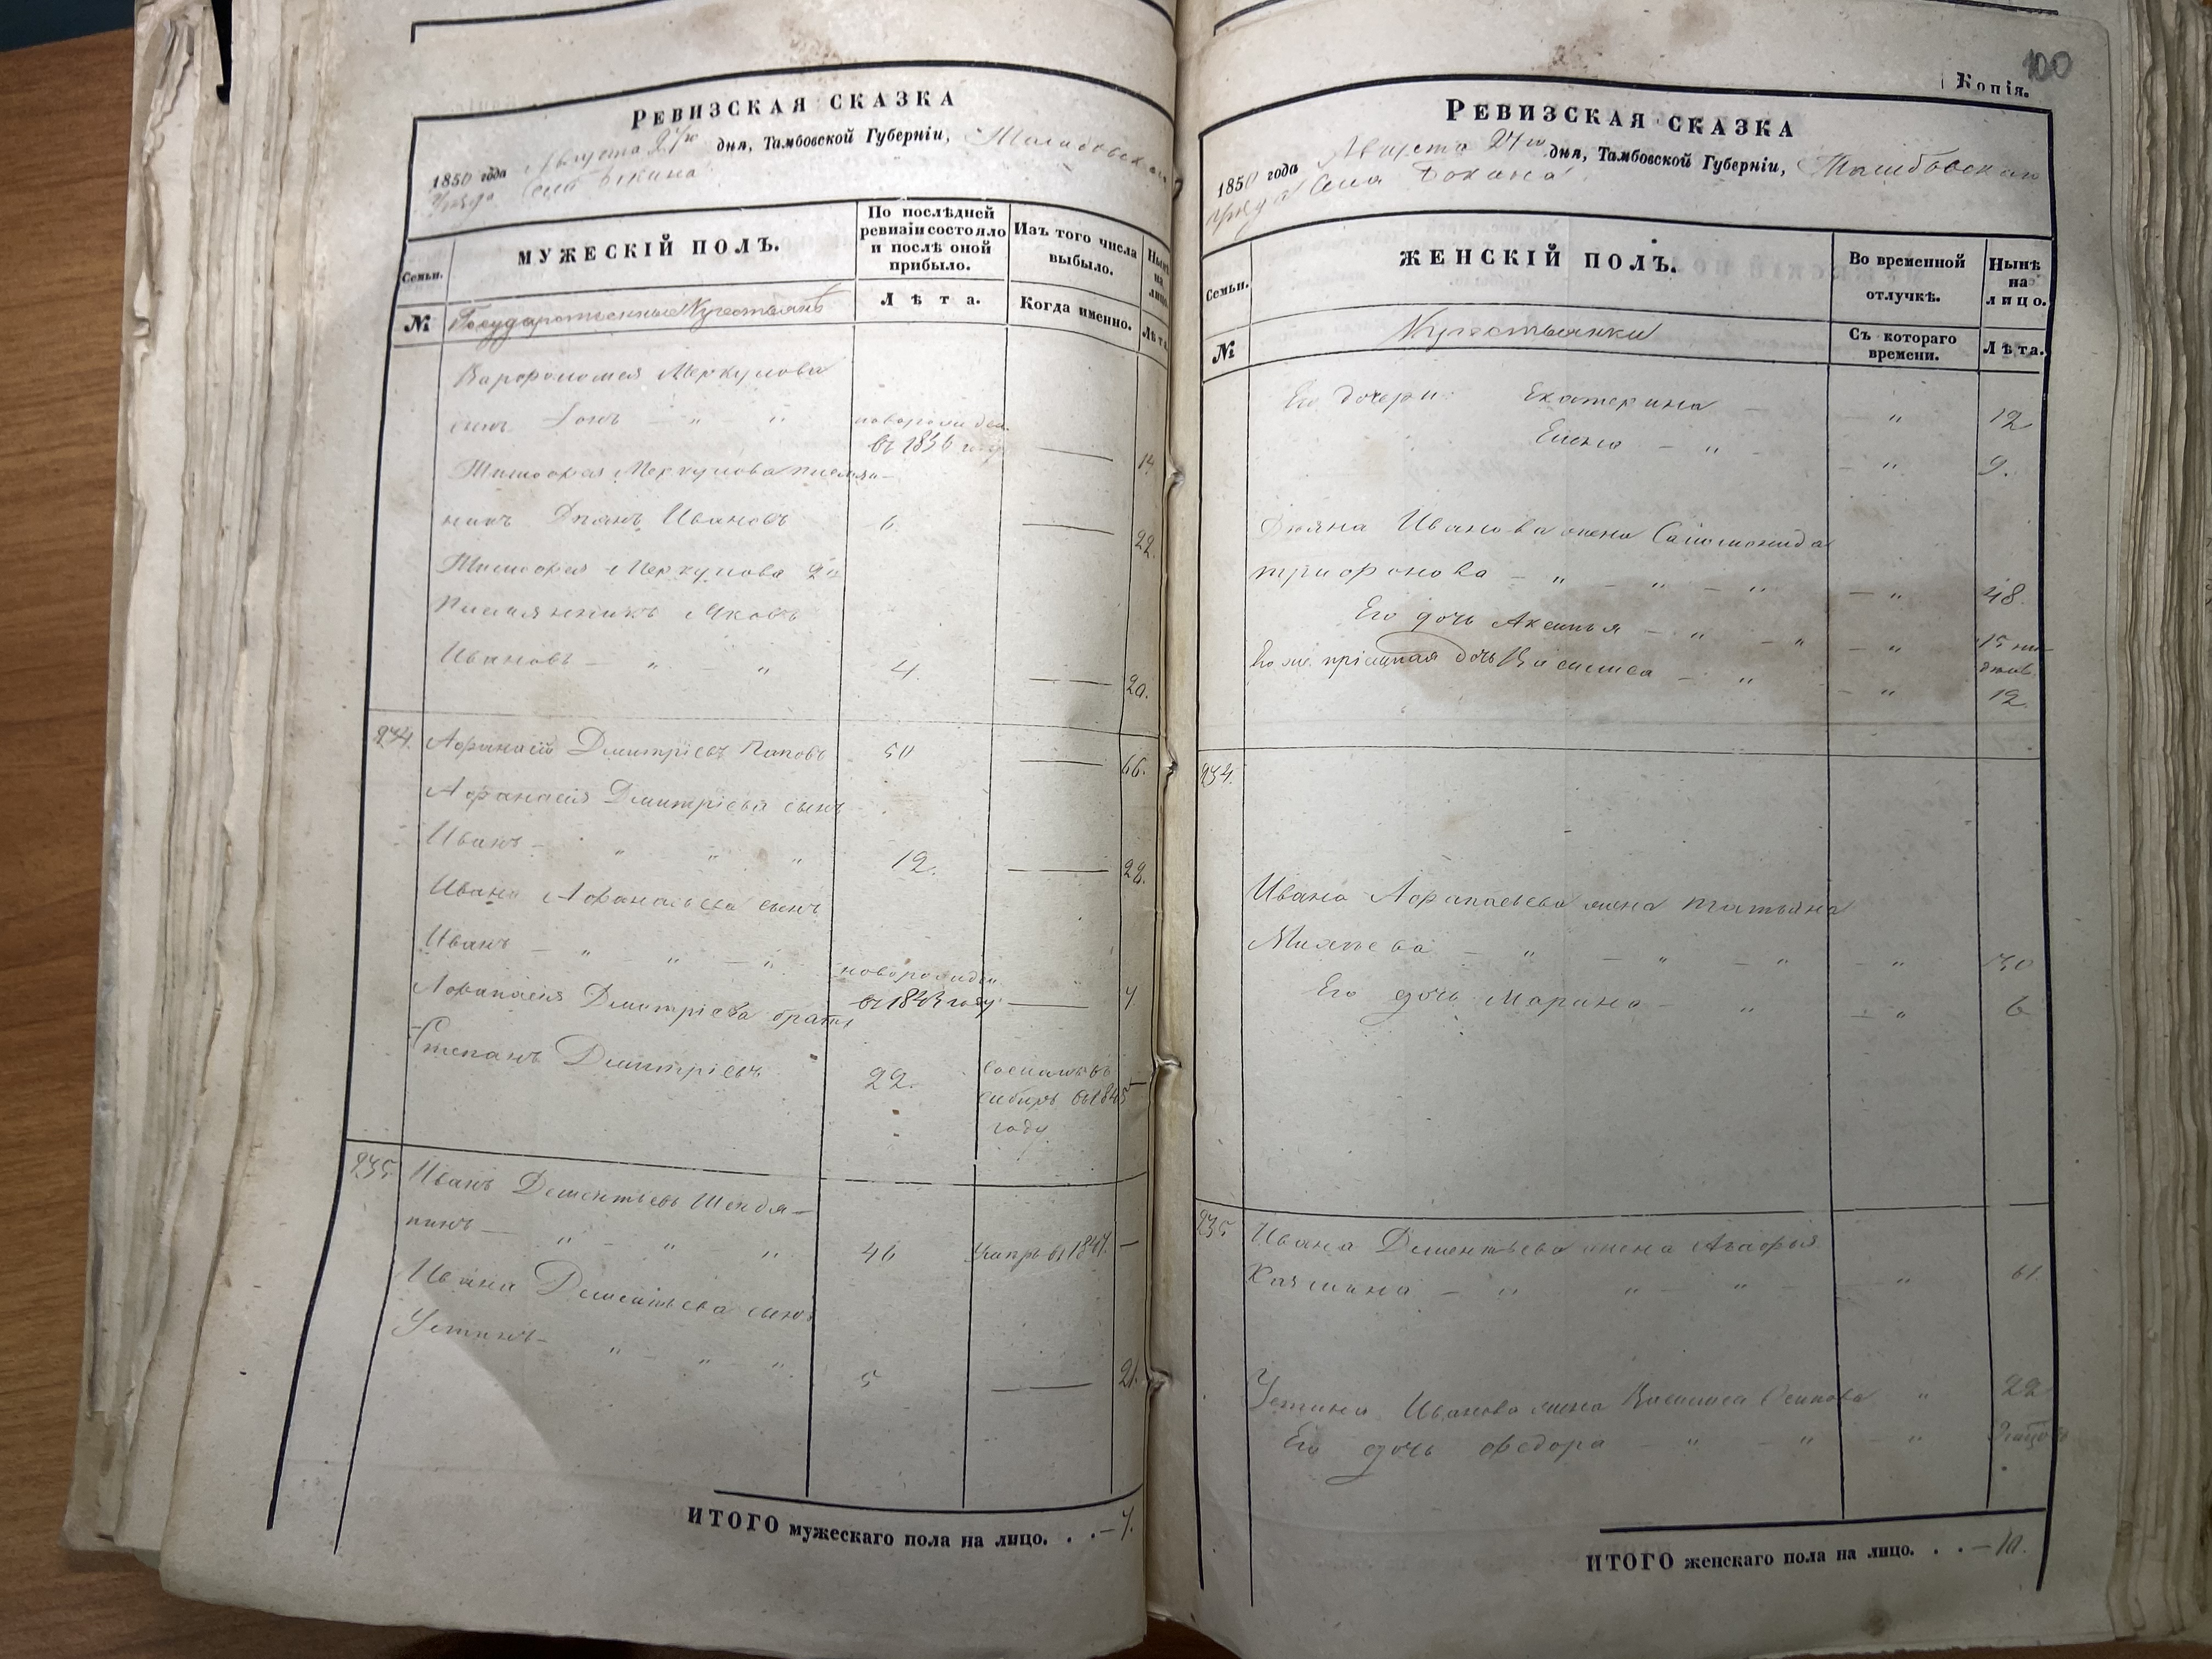 РЕВИЗСКАЯ СКАЗКА
1850 года Августа 24го дня, Тамбовской Губерніи, Тамбовскаго
уѣзда Села Бокина
Семьи.
МУЖЕСКІЙ ПОЛЪ.
По послѣдней ревизіи состояло и послѣ оной прибыло.
Изъ того числа выбыло.
Нынѣ на лицо.
№
Государственные Крестьяне
Лѣта.
Когда именно.
Лѣта.
Варфоломея Меркулова
сынъ " " новорожден.
въ 1836 году — 14.
Тимофея Меркулова племян-
никъ Иванов 6 — 22.
Тимофея Меркулова 2й
племянникъ Яковъ
Ивановъ — " " 4. — 20.
234. Афанасій Дмитріевъ Поповъ 50 — 66.
Афанасія Дмитріева сынъ
Иванъ — " " " 12. — 28.
Ивана Афанасьева сынъ
Иванъ — " " — " новорожден
въ 1843 году — 7
Афанасія Дмитріева братъ
Степанъ Дмитріевъ 22. сосланъ въ
сибирь въ 1845 —
году
235. Иванъ Дементьевъ Шендя-
пинъ — " " " 46 Умеръ въ 1847. —
Ивана Дементьева сынъ
Устинъ — " " " 5 — 21.
ИТОГО мужескаго пола на лицо. . . — 7.
100
Копія.
РЕВИЗСКАЯ СКАЗКА
1850 года Августа 24го дня, Тамбовской Губерніи, Тамбовскаго
уѣзда Села Бокина
Семьи.
ЖЕНСКІЙ ПОЛЪ.
Во временной отлучкѣ.
Нынѣ на лицо.
№
Крестьянки
Съ котораго времени.
Лѣта.
Его дочери: Екатерина — — " 12
Елена — " — — " 9.
Ивановa жена Саломонида
Трифонова — " — " — " — " 48.
Его дочь Аксинья — " — " — "
Его же пріемная дочь Василиса — " — " 12.
234.
Ивана Афанасьева жена Татьяна
— " — " — " — " 30
Его дочь Марина — " — " 6
235. Ивана Дементьева жена
— " " — " — " 61.
Устина Иванова жена Василиса Осипова " 22
Его дочь Федора — " — " — "
ИТОГО женскаго пола на лицо. . . — 10.